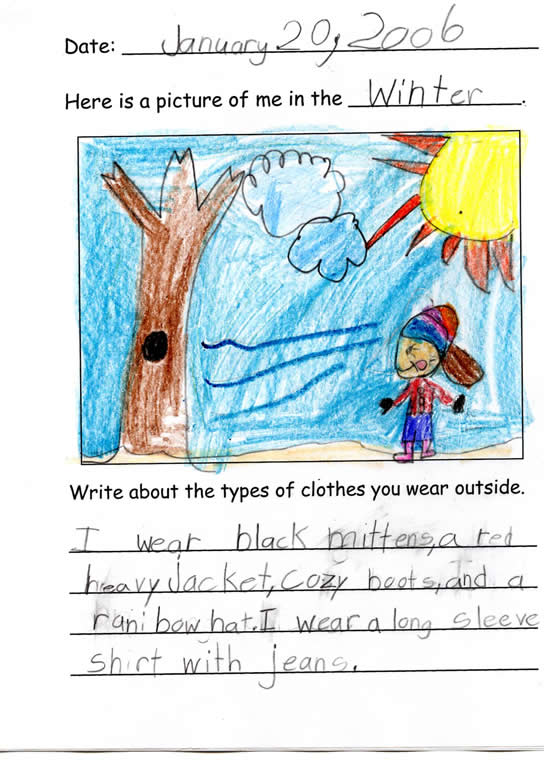 Date: January 20, 2006
Here is a picture of me in the Winter.
Write about the types of clothes you wear outside.
I wear black mittens, a red
heavy jacket, cozy boots, and a
rani bow hat. I wear a long sleeve
shirt with jeans.